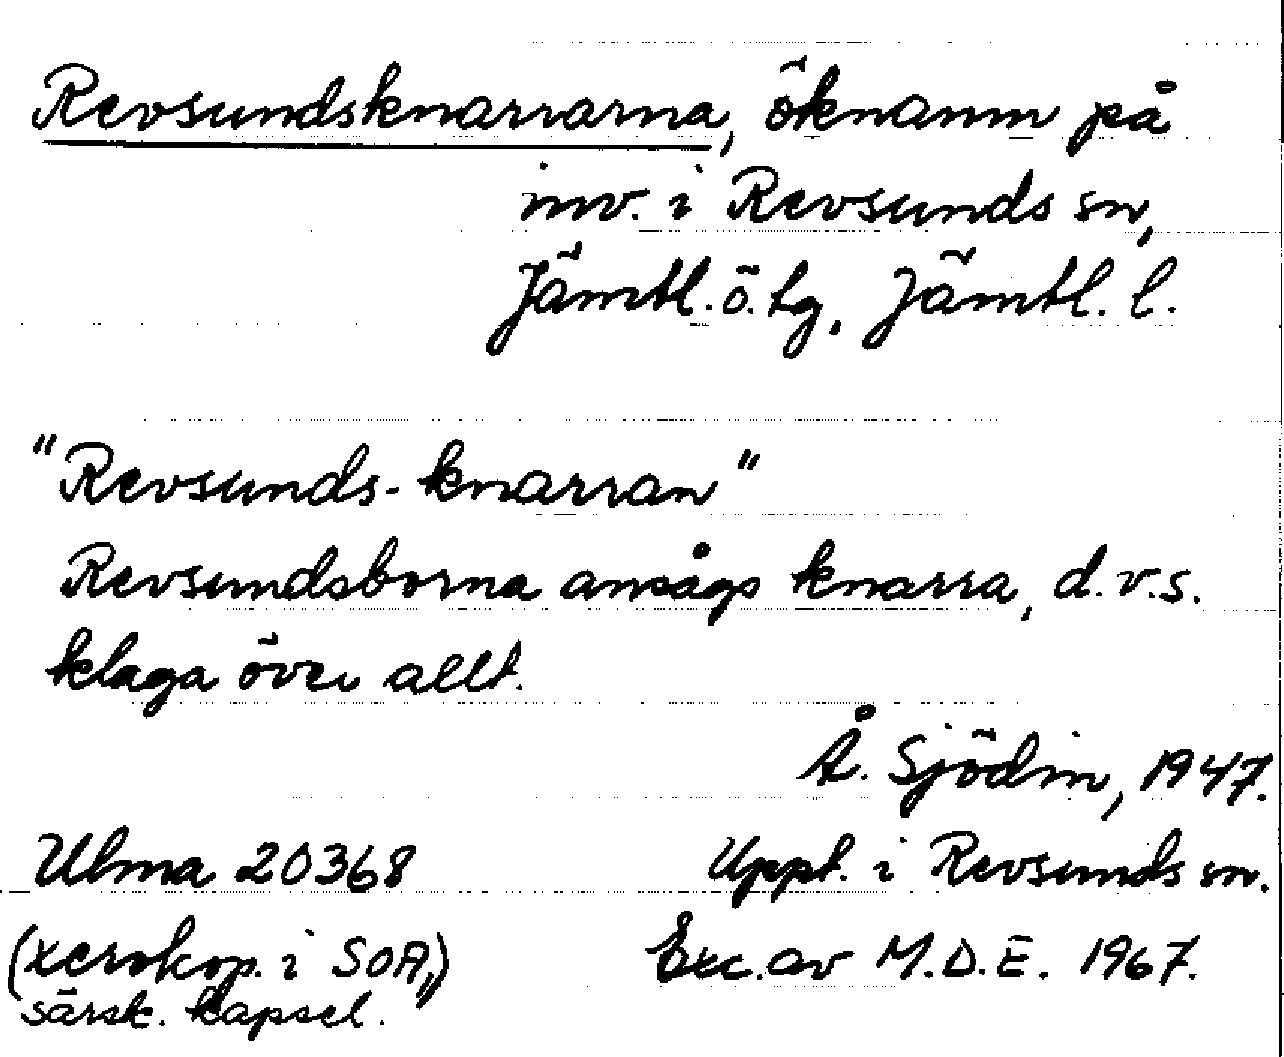 Revsundsknarrarna, öknamn på
inv. i Revsunds sn,
Jämtl. ö. tg, Jämtl. l.
"Revsunds-knarran"
Revsundsborna ansågs knarra, d.v.s.
klaga över allt.
Å. Sjödin, 1947.
Ulma 20368
Uppt. i Revsunds sn.
(xerokop. i SOA,)
Exc. av M.D.E. 1967.
särsk. kapsel.